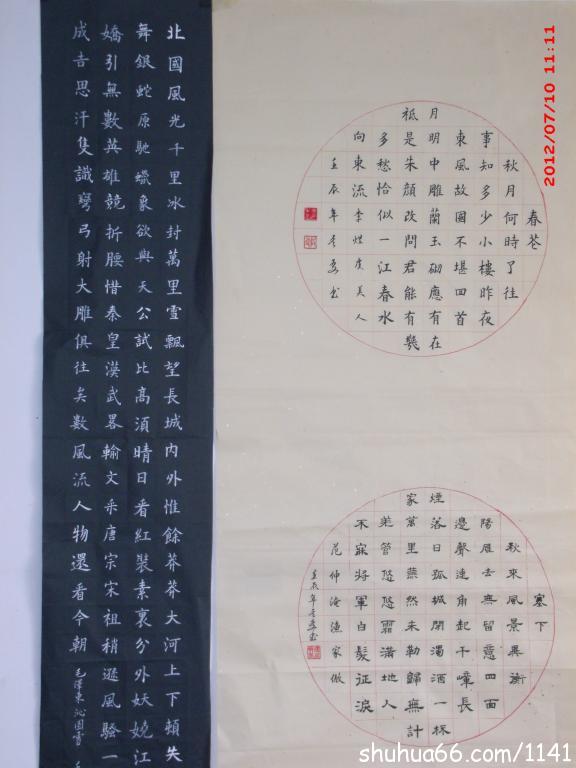 春花
秋月何時了往
事知多少小樓昨夜
東風故國不堪回首
月明中雕蘭玉砌應有在
祇是朱顔改問君能有幾
多愁恰似一江春水
向東流李煜虞美人
壬辰年書
塞下
秋來風景異衡
陽雁去無留意四面
邊聲連角起千嶂長
煙落日孤城閉濁酒一杯
家萬里燕然未勒歸無計
羌管悠悠霜滿地人
不寐將軍白髮征淚
范仲淹漁家傲
壬辰年書
北國風光千里冰封萬里雪飄望長城内外惟餘莽莽大河上下頓失
舞銀蛇原馳蠟象欲與天公試比高須晴日看紅裝素裹分外妖嬈江
嬌引無數英雄競折腰惜秦皇漢武畧輸文采唐宗宋祖稍遜風騷一
成吉思汗隻識彎弓射大雕俱往矣數風流人物還看今朝
毛澤東沁園雪
2012/07/10 11:11
shuhua66.com/1141